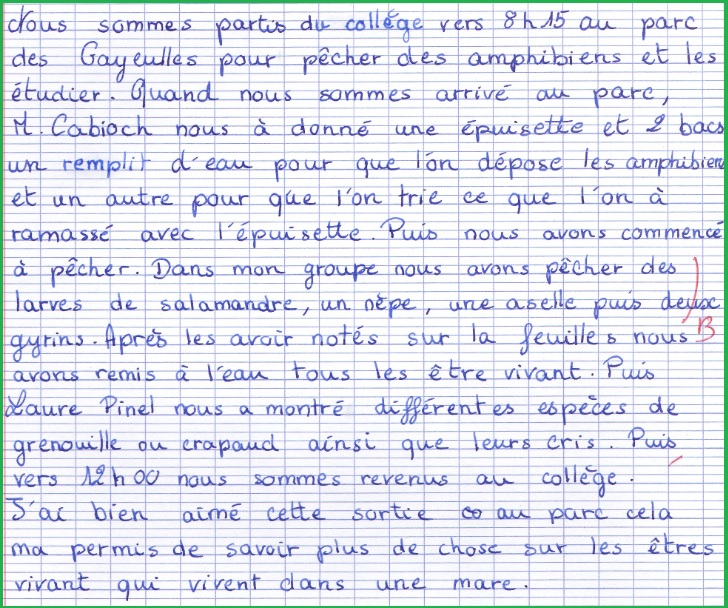 Nous sommes partis du collége vers 8h15 au parc
des Gayeulles pour pêcher des amphibiens et les
étudier. Quand nous sommes arrivé au parc,
M. Cabioch nous à donné une épuisette et 2 bacs
un remplit d'eau pour que l'on dépose les amphibiens
et un autre pour que l'on trie ce que l'on à
ramassé avec l'épuisette. Puis nous avons commencé
à pêcher. Dans mon groupe nous avons pêcher des
larves de salamandre, un nèpe, une aselle puis deux
gyrins. Après les avoir notés sur la feuilles nous B
avons remis à l'eau tous les être vivant. Puis
Laure Pinel nous a montré différentes espèces de
grenouille ou crapaud ainsi que leurs cris. Puis
vers 12h00 nous sommes revenus au collége.
J'ai bien aimé cette sortie au parc cela
ma permis de savoir plus de chose sur les êtres
vivant qui vivent dans une mare.